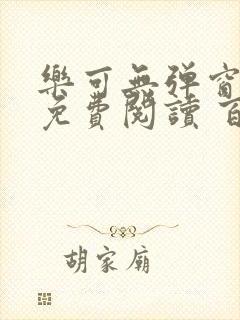 樂可無弹窗
免費閱讀 百
胡家廟